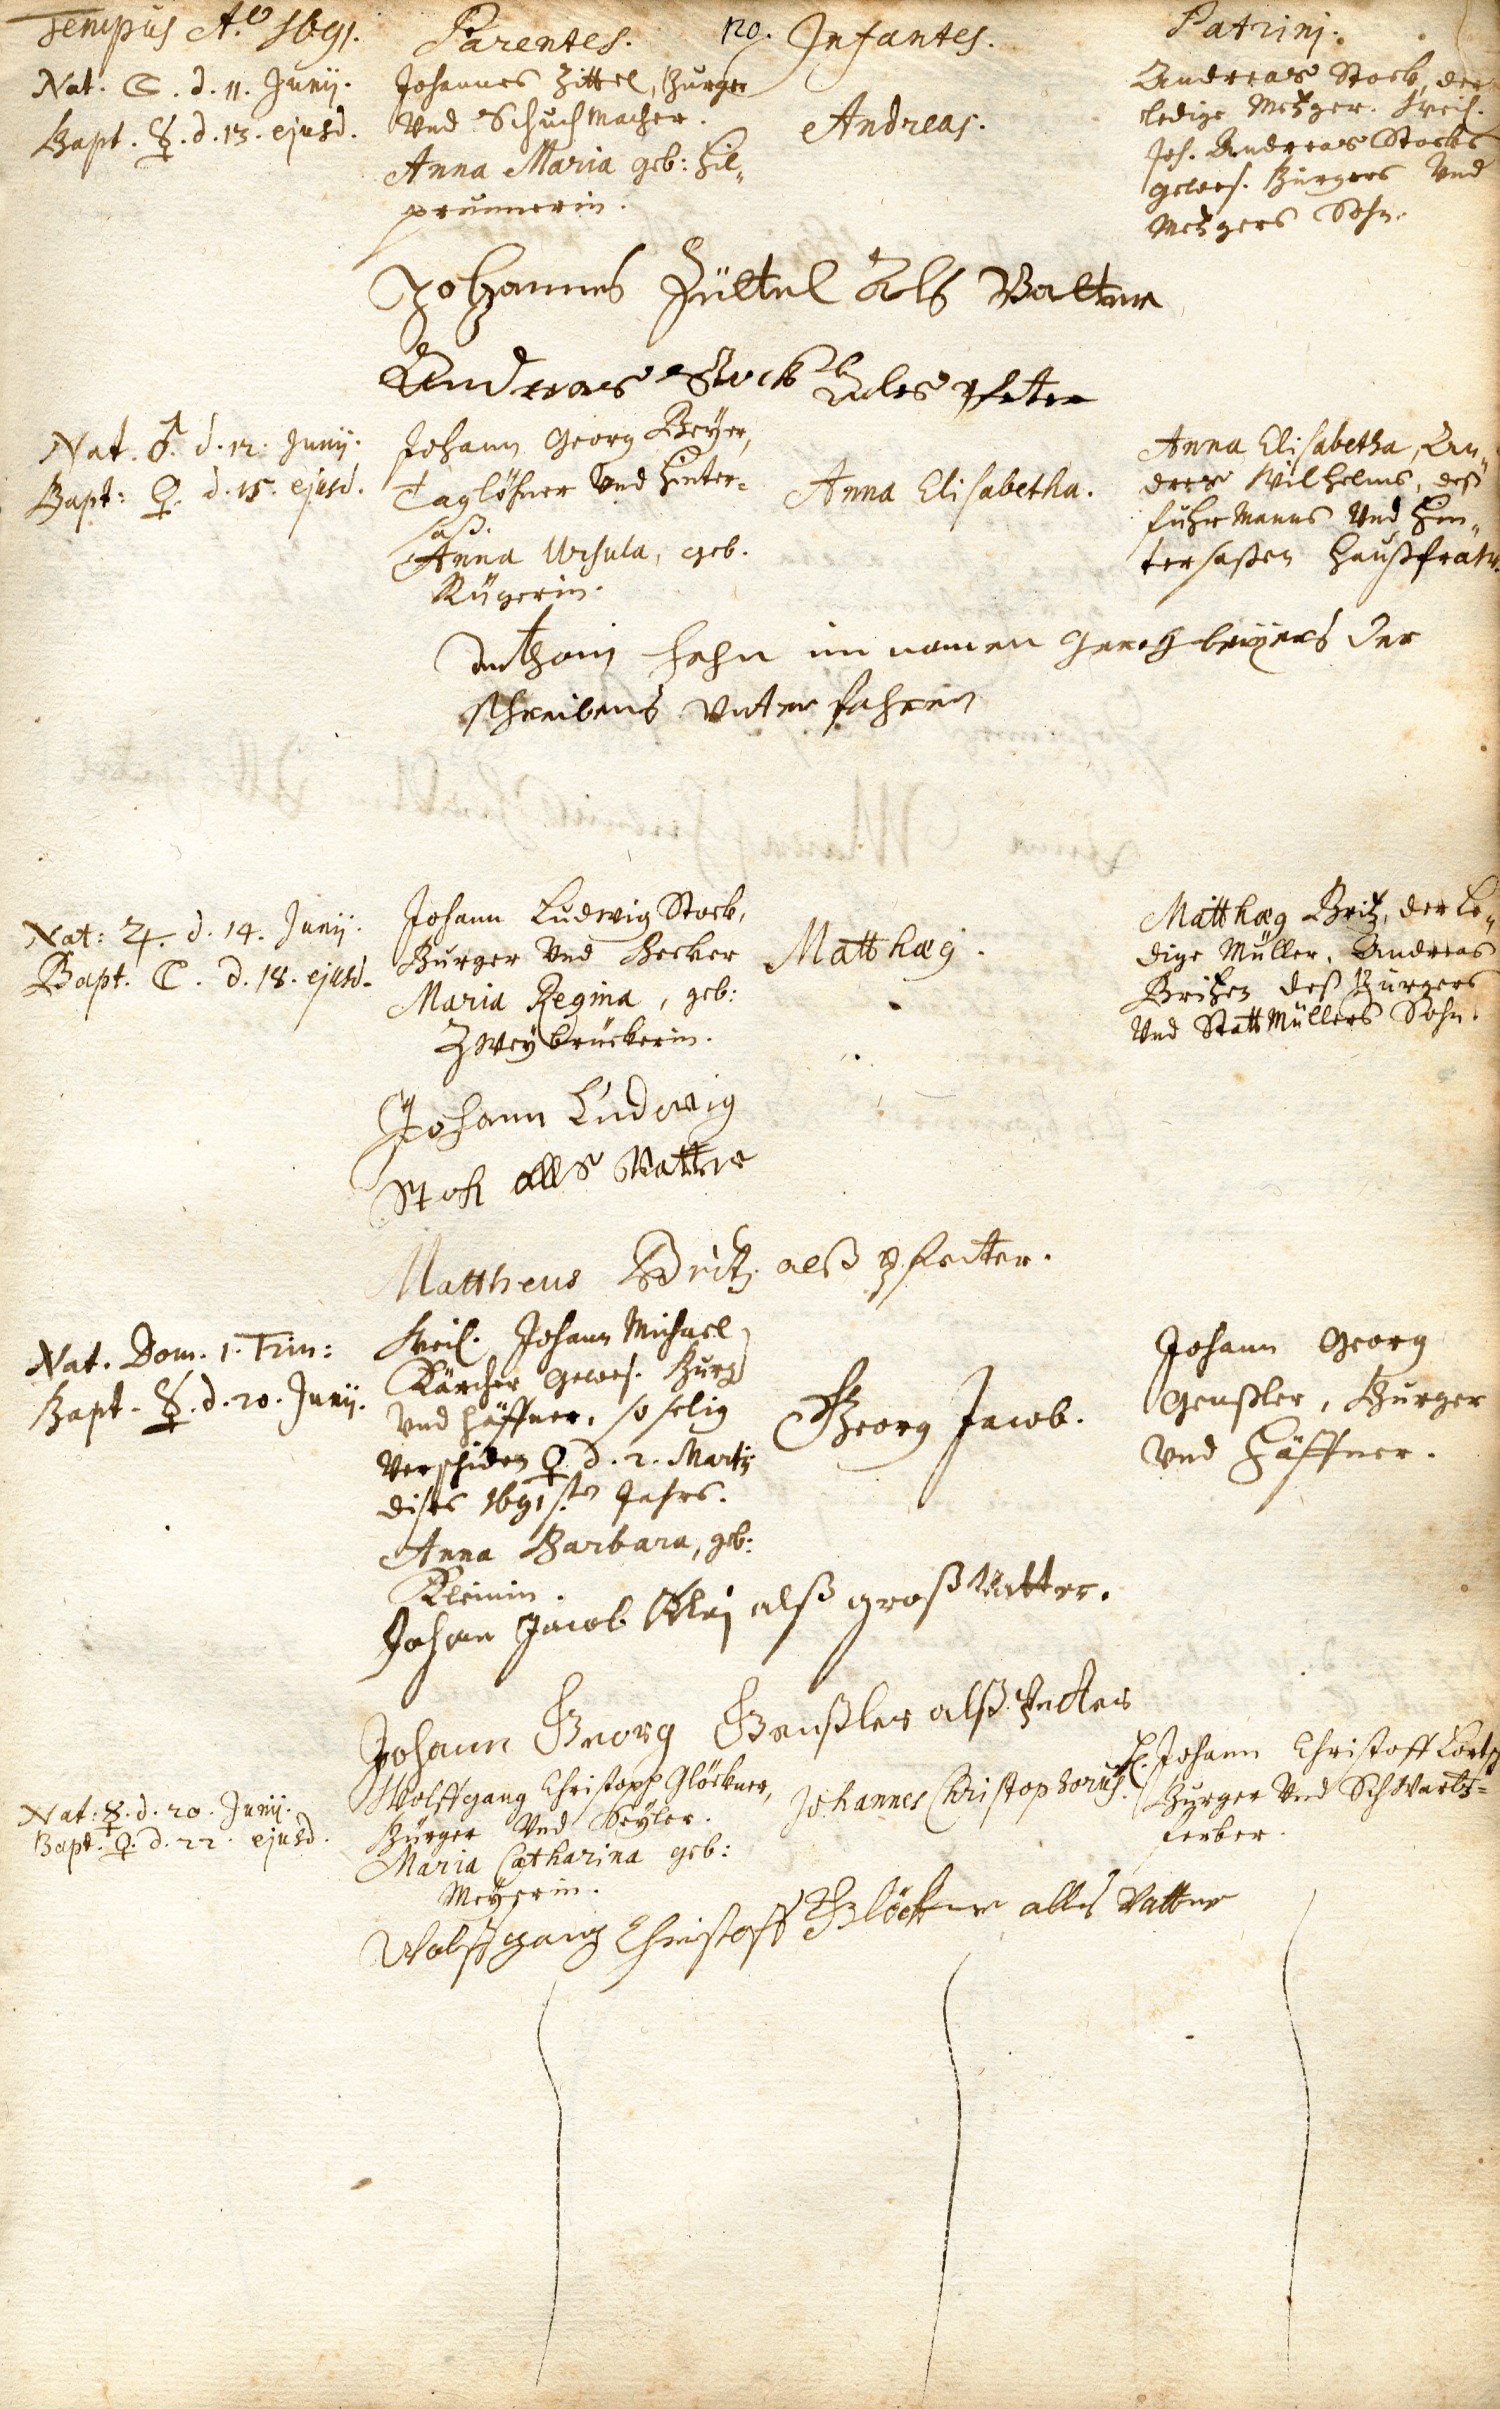 Tempus Aō 1691.
Parentes.
120.
Infantes.
Patrinj.
Nat. ☾. d. 11. Junij.
Bapt. ☿. d. 13. ejusd.
Johannes Zittel, Burger
Vnd Schuchmacher.
Anna Maria geb: Hil„
prunnerin.
Andreas.
Andreas Stock, der
ledige Metzger. Weil.
Joh. Andreas Stocks
gewes. Burgers Vnd
Metzgers Sohn.
Johannes Züttel Als Vatter
Andreas Stock Als Pfetter
Nat. ♂. d. 12. Junij.
Bapt: ♀. d. 15. ejusd.
Johann Georg Beÿer,
Taglöhner Vnd Hinter-
saß.
Anna Ursula, geb.
Rügerin.
Anna Elisabetha.
Anna Elisabetha, An„
dres Wilhelms, deß
fuhrmanns Vnd Hin„
tersaßen Haußfraw.
Anthonj Hahn im namen Georg beÿers der
schreibens Vnterfahren
Nat: ♃. d. 14. Junij.
Bapt. ☾. d. 18. ejusd.
Johann Ludwig Stock,
Burger Vnd Becker
Maria Regina, geb:
Zweÿbrückerin.
Matthæy.
Matthæy Britz, der Le„
dige Müller, Andreas
Britzen deß Burgers
Vnd StattMüllers Sohn.
Johann Ludwig
Stok alls Vatter
Mattheus Britz alß Pfetter.
Nat. Dom. 1. Trin:
Bapt. ☿. d. 20. Junij.
Weil. Johann Michael
Kärcher gewes. Burger
Vnd Häffner, so selig
Verschiden ♀. d. 2. Martij
dises 1691sten Jahrs.
Anna Barbara, geb:
Kleinin.
Georg Jacob.
Johann Georg
Genßler, Burger
Vnd Häffner.
Johan Jacob Klej alß großVatter.
Johann Georg Genßler alß Petter
Nat: ☿. d. 20. Junij.
Bapt. ♀. d. 22. ejusd.
Wolffgang Christoph Glöckner,
Bürger Vnd Seÿler.
Maria Catharina geb:
Meÿerin.
Johannes Christophorus.
H. Johann Christoff
Burger Vnd Schwartz-
ferber.
Wolffgang Christoff Glöckner alls Vatter